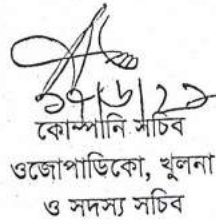 ১৭/৬/২১
কোম্পানি সচিব
ওজোপাডিকো, খুলনা
ও সদস্য সচিব